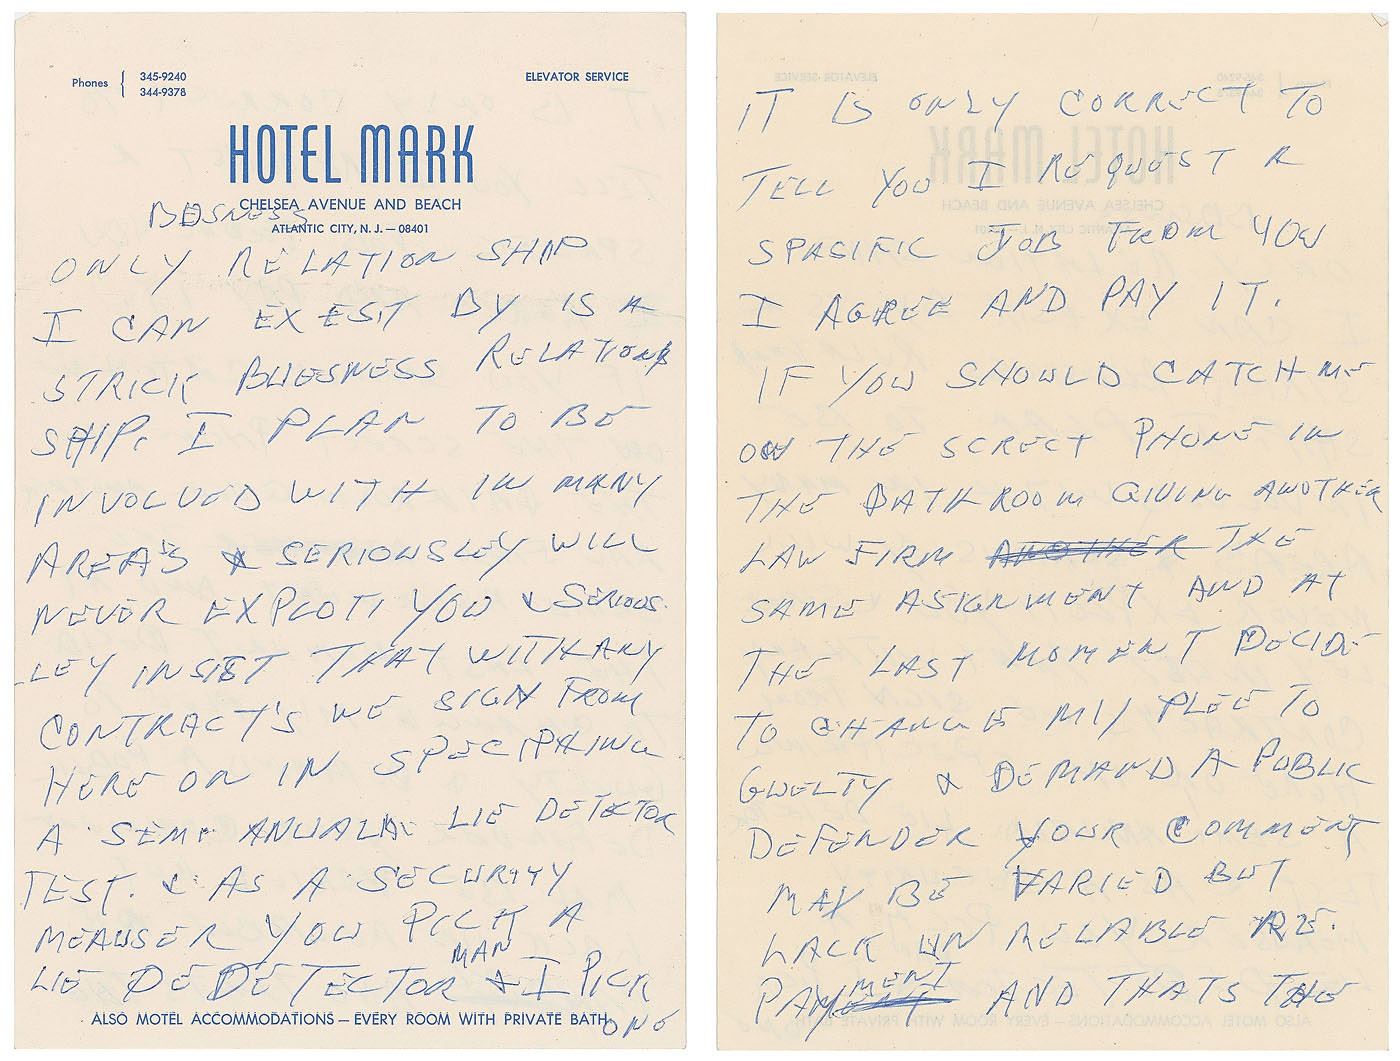 Phones { 345-9240
344-9378
ELEVATOR SERVICE
HOTEL MARK
CHELSEA AVENUE AND BEACH
ATLANTIC CITY, N. J. — 08401
BUSNESS
ONLY RELATION SHIP
I CAN EXESIT BY IS A
STRICK BUESNESS RELATIONS
SHIP. I PLAN TO BE
INVOLVED WITH IN MANY
AREA'S & SERIOUSLEY WILL
NEVER EXPLOTI YOU & SERIOUS-
LEY INSIST THAT WITH ANY
CONTRACT'S WE SIGN FROM
HERE ON IN SPECIPHING
A SEMI ANUALA LIE DETECTOR
TEST. & AS A SECURITY
MEAUSER YOU PICK A
LIE DEDETECTOR MAN & I PICK
ONE
ALSO MOTEL ACCOMMODATIONS — EVERY ROOM WITH PRIVATE BATH
IT IS ONLY CORRECT TO
TELL YOU I REQUEST A
SPASIFIC JOB FROM YOU
I AGREE AND PAY IT.
IF YOU SHOULD CATCH ME
ON THE SCRECT PHONE IN
THE BATHROOM GIVING ANOTHER
LAW FIRM ANOTHER THE
SAME ASIGNMENT AND AT
THE LAST MOMENT DECIDE
TO CHANGE MY PLEE TO
GUELTY & DEMAND A PUBLIC
DEFENDER YOUR COMMENT
MAY BE VARIED BUT
LACK UNRELABLE RE.
PAYMENT AND THATS THE